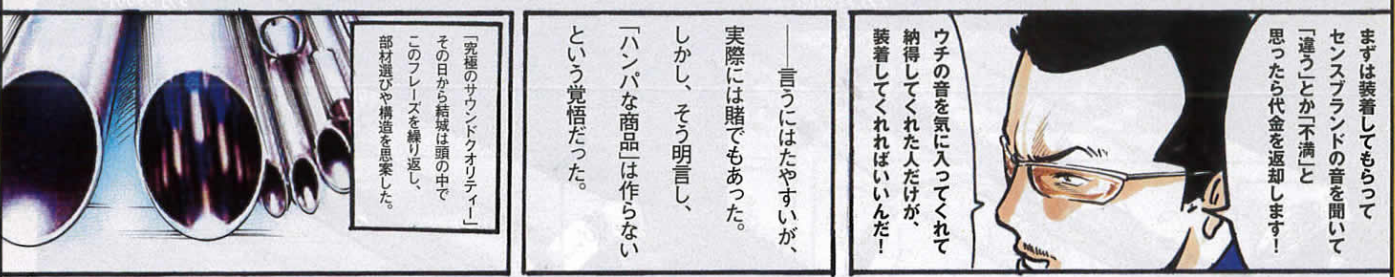 まずは装着してもらって
センスブランドの音を聞いて
「違う」とか「不満」と
思ったら代金を返却します！
ウチの音を気に入ってくれて
納得してくれた人だけが、
装着してくれればいいんだ！
――言うにはたやすいが、
実際には賭でもあった。
しかし、そう明言し、
「ハンパな商品」は作らない
という覚悟だった。
「究極のサウンドクオリティー」
その日から結城は頭の中で
このフレーズを繰り返し、
部材選びや構造を思案した。